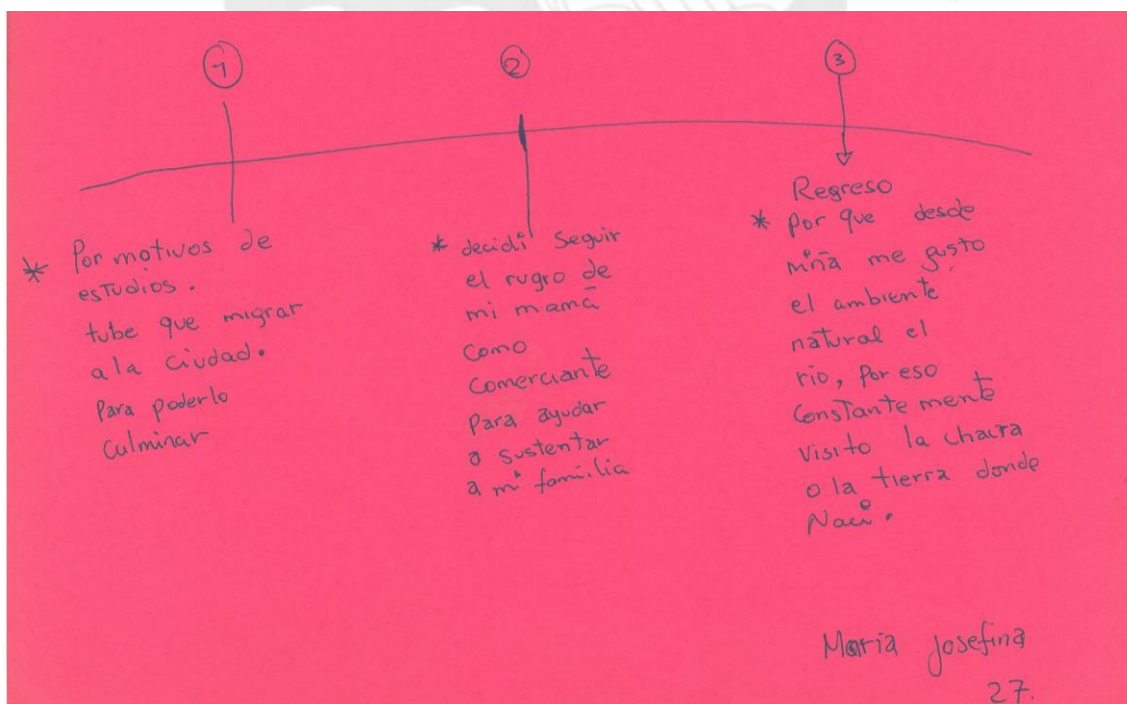 1
* Por motivos de
estudios.
tube que migrar
a la ciudad.
Para poderlo
culminar
2
* decidi seguir
el rugro de
mi mamá
como
comerciante
para ayudar
a sustentar
a mi familia
3
Regreso
* por que desde
niña me gusto
el ambiente
natural el
rio, por eso
constante mente
visito la chacra
o la tierra donde
Naci.
Maria Josefina
27.